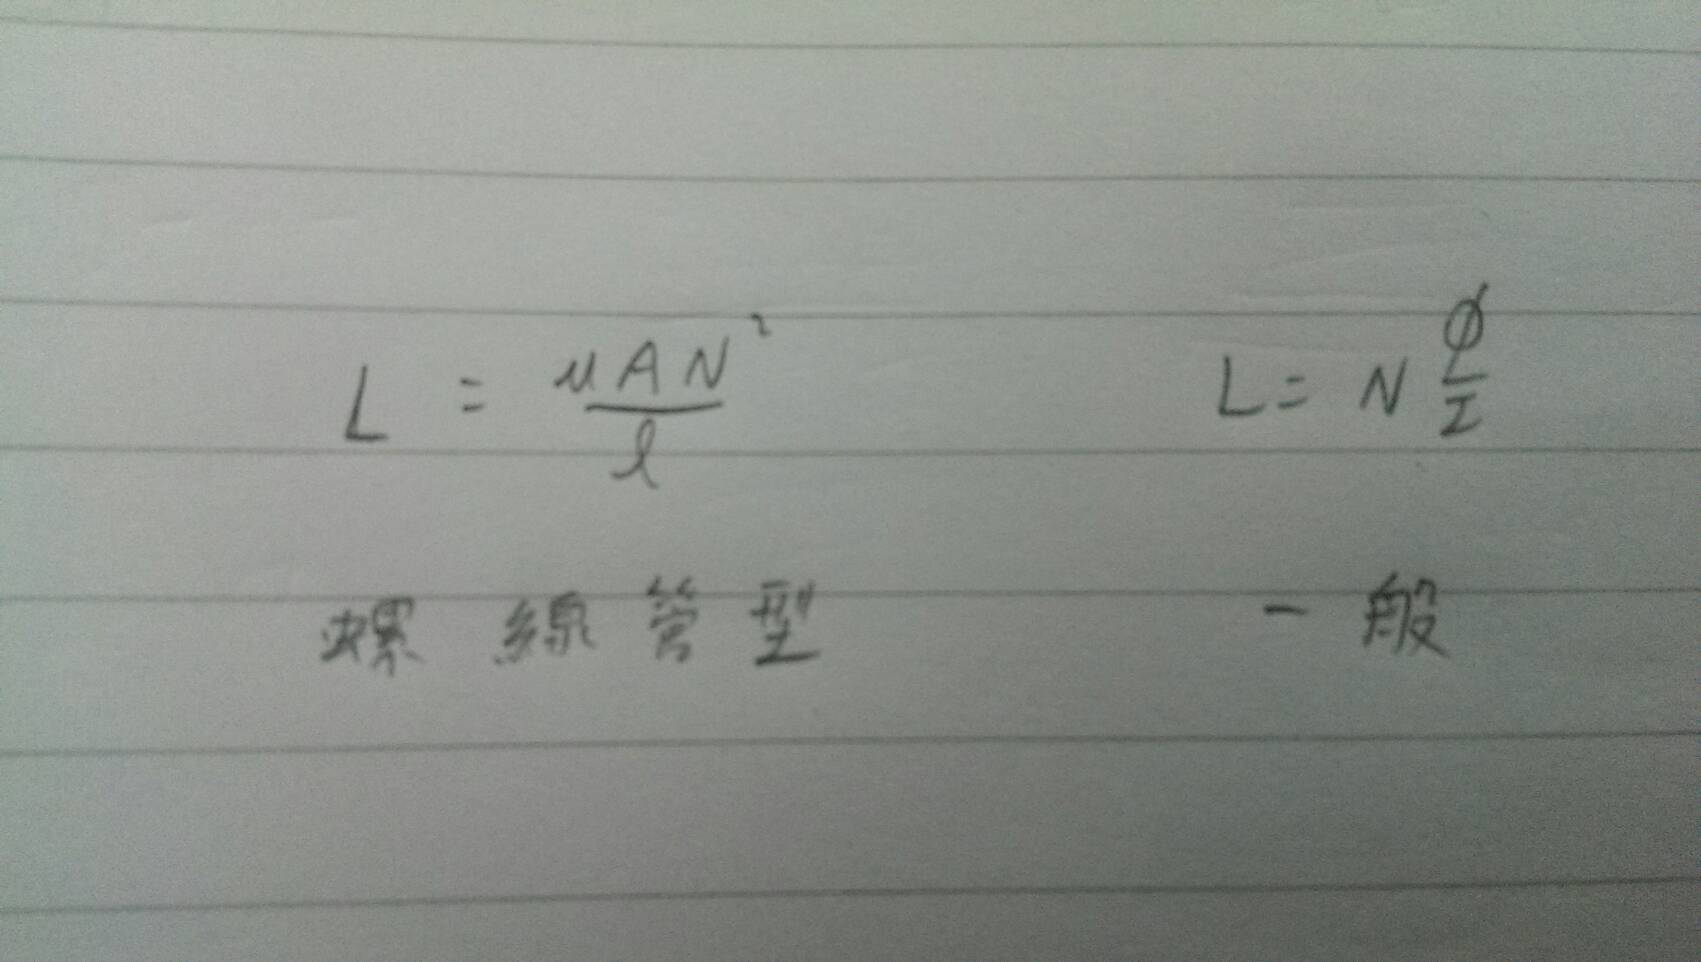 L = μAN²/l L = N ϕ/I
螺線管型 一般